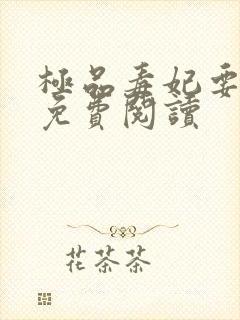 極品毒妃要
免費閱讀
花茶茶